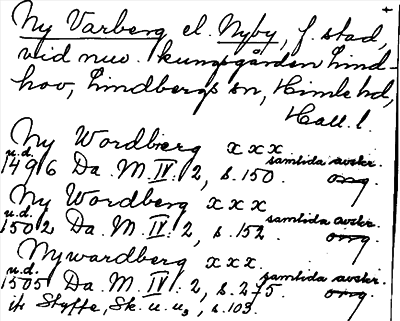 Ny Varberg el. Nyby, f. stad,
vid nuv. kungsgården Lind-
hov, Lindbergs sn, Himle hd,
Hall. l.
Ny Wordbierg x x x
u.d. samtida avskr.
1496 Da. M. IV: 2, s. 150. orig.
Ny Wordberg x x x
u.d. samtida avskr.
1502 Da. M. IV: 2, s. 152. orig.
Nywardberg x x x
u.d. samtida avskr.
1505 Da. M. IV: 2, s. 275. orig.
jfr Styffe, Sk. u. u., s. 103.